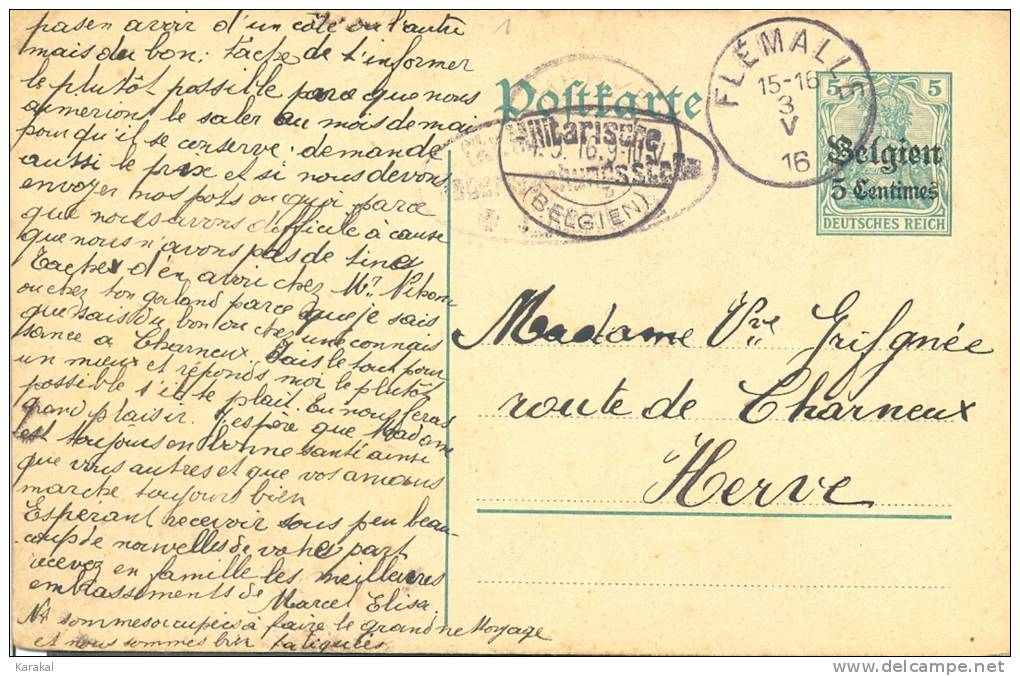 pas en avoir d'un côté ou l'autre
mais du bon; tache de t'informer
le plutôt possible parce que nous
aimerions le saler au mois de mai
pour qu'il se conserve. demande
aussi le prix et si nous devons
envoyer nos pots ou quoi parce
que nous avons difficile à cause
que nous n'avons pas de
Tachez d'en avoir chez Mr.
ou chez ton parce que je sais
que sais du bon ou chez une connais
sance a Charneux. Fais le tout pour
un mieux et réponds moi le plutôt
possible s'il te plait. En nous feras
grand plaisir. J'espère que Madame
est toujours en bonne santé ainsi
que vous autres et que vos
marche toujours bien
Esperant recevoir sous peu beau-
coup de nouvelles de votre part
recevez en famille les meilleures
embrassements de Marcel Elisa.
sommes occupées à faire le grand nettoyage
et nous sommes bien fatiguées
1
Postkarte
Militärische
4.5.16.
(BELGIEN)
FLÉMALLE
15-16
3
V
16
5 5
Belgien
5 Centimes
DEUTSCHES REICH
Madame Vve Grifgnée
route de Charneux
Herve
Karakal
www.delcampe.net